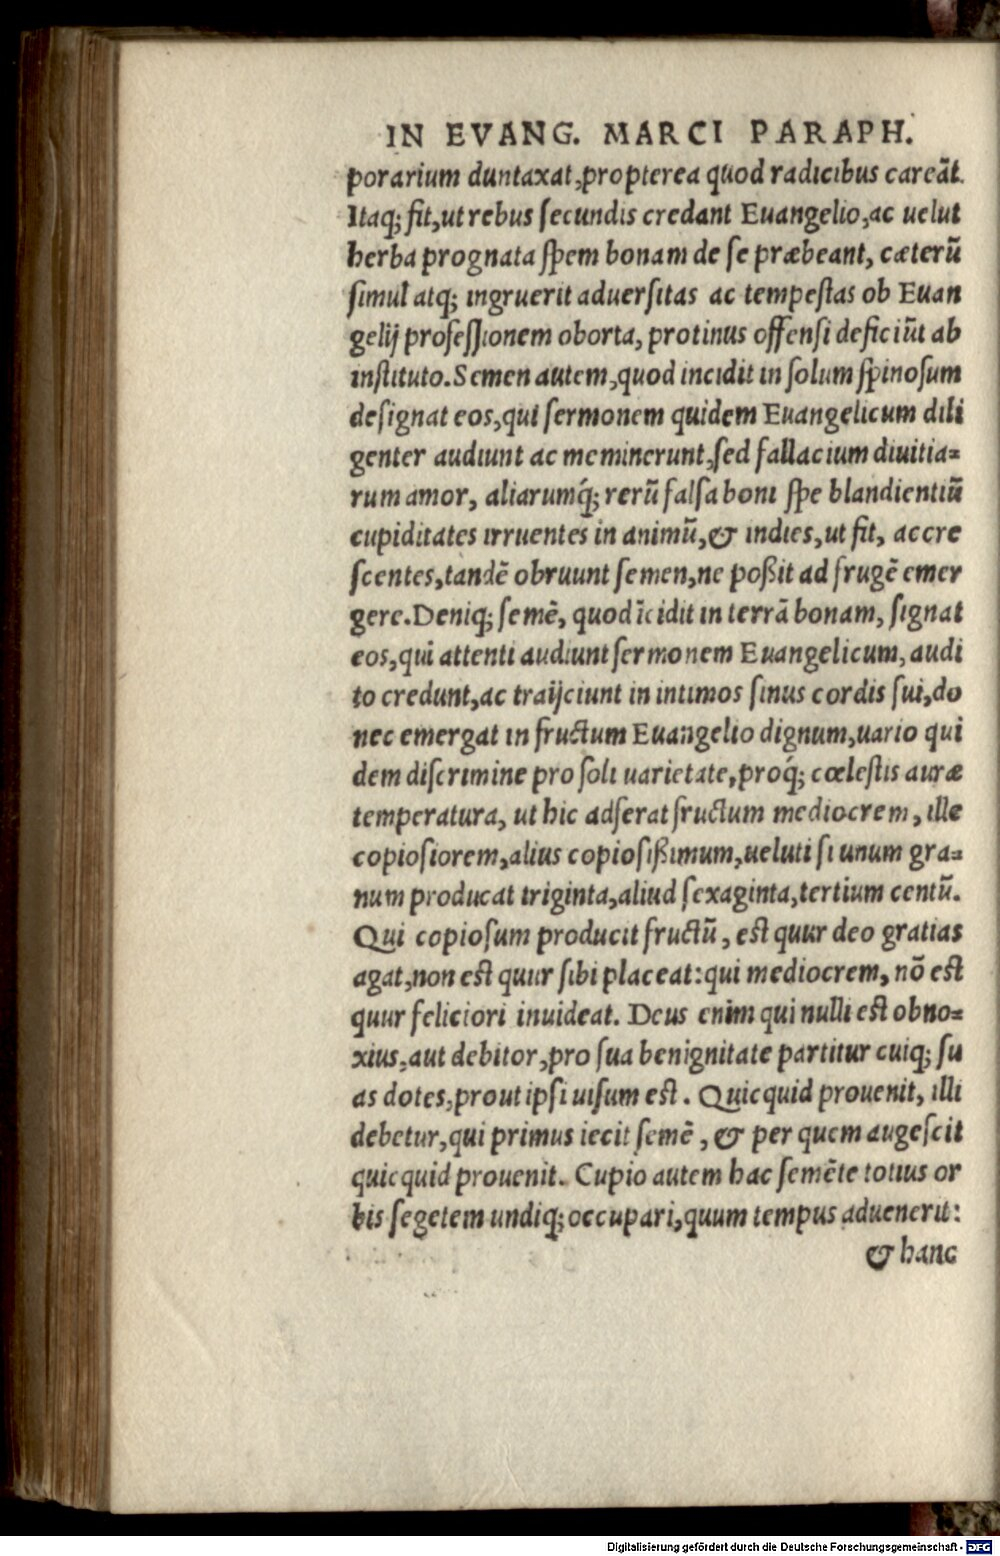 IN EVANG. MARCI PARAPH.
porarium duntaxat, propterea quod radicibus careāt.
Itaq; fit, ut rebus secundis credant Euangelio, ac uelut
herba prognata spem bonam de se præbeant, cæterū
simul atq; ingruerit aduersitas ac tempestas ob Euan
gelij professionem oborta, protinus offensi deficiūt ab
instituto. Semen autem, quod incidit in solum spinosum
designat eos, qui sermonem quidem Euangelicum dili
genter audiunt ac meminerunt, sed fallacium diuitia=
rum amor, aliarumq́; rerū falsa boni spe blandientiū
cupiditates irruentes in animū, & indies, ut fit, accre
scentes, tandē obruunt semen, ne poßit ad frugē emer
gere. Deniq; semē, quod īcidit in terrā bonam, signat
eos, qui attenti audiunt sermonem Euangelicum, audi
to credunt, ac traijciunt in intimos sinus cordis sui, do
nec emergat in fructum Euangelio dignum, uario qui
dem discrimine pro soli uarietate, proq́; cœlestis auræ
temperatura, ut hic adferat fructum mediocrem, ille
copiosiorem, alius copiosißimum, ueluti si unum gra=
num producat triginta, aliud sexaginta, tertium centū.
Qui copiosum producit fructū, est quur deo gratias
agat, non est quur sibi placeat: qui mediocrem, nō est
quur feliciori inuideat. Deus enim qui nulli est obno=
xius, aut debitor, pro sua benignitate partitur cuiq; su
as dotes, prout ipsi uisum est. Quicquid prouenit, illi
debetur, qui primus iecit semē, & per quem augescit
quicquid prouenit. Cupio autem hac semēte totius or
bis segetem undiq; occupari, quum tempus aduenerit:
& hanc
Digitalisierung gefördert durch die Deutsche Forschungsgemeinschaft - DFG